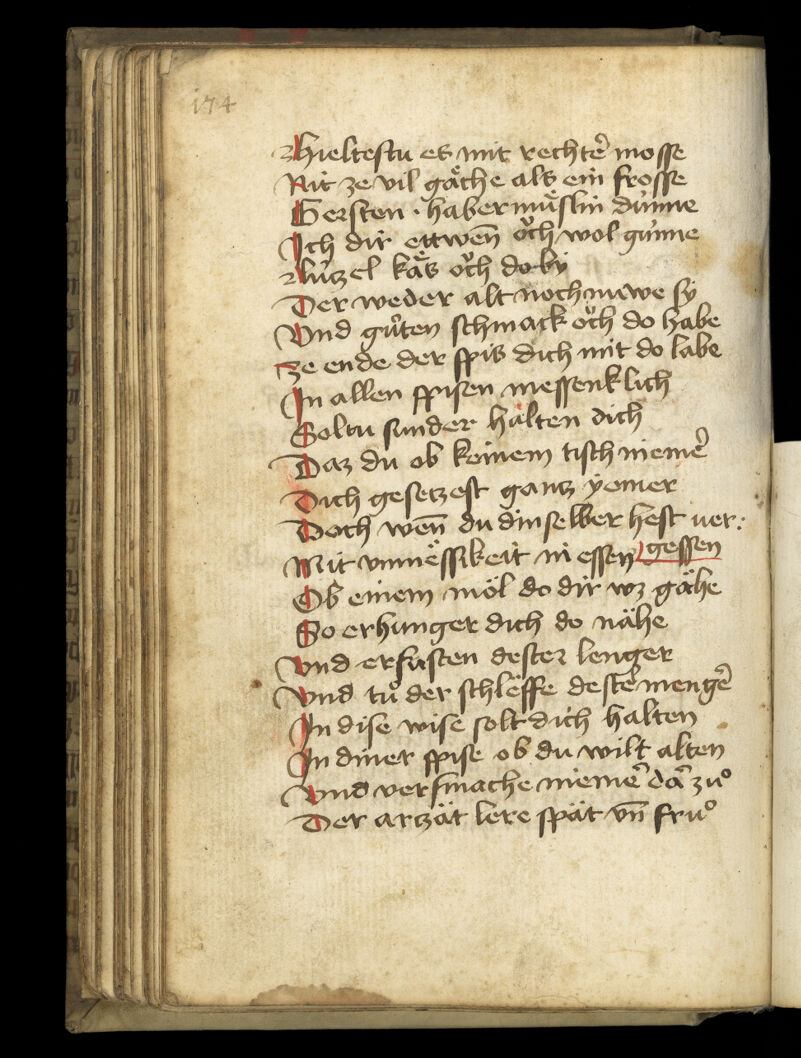 174
Hieltestu es mit rechtē mosse
Nit ze vil gäche als ein frosse
Gersten · habermüslin dünne
Ich dir ettwen̄ öch wol günne
Lützel käs öch do by
Der weder alt noch nuwe sy
Vnd gůten schmack öch do habe
Ze ende der spis dich mit do labe
In allen spisen messenklich
Soltu sunder halten dich
Daz du ob keinem tisch niemē
Dich gesetzest gantz yemer
Doch wen̄ du din selber hest ver:
Mit vnmëssikeit in essen gessen
Ob einem möl do dir wz gähe
So erhunger dich do nähe
Vnd erfasten dester lenger
Vnd tů der schleffe destē mengē
In dise wise solt dich halten
In diner spise ob du wilt alten
Vnd versmache niemē dā zů
Der artzät lere spät vn̄ frů